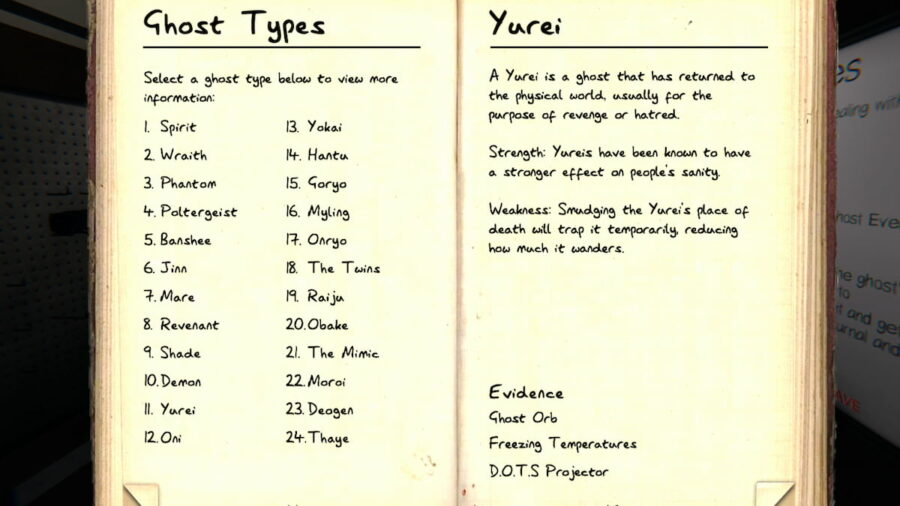 Ghost Types
Select a ghost type below to view more
information:
1. Spirit
2. Wraith
3. Phantom
4. Poltergeist
5. Banshee
6. Jinn
7. Mare
8. Revenant
9. Shade
10. Demon
11. Yurei
12. Oni
13. Yokai
14. Hantu
15. Goryo
16. Myling
17. Onryo
18. The Twins
19. Raiju
20. Obake
21. The Mimic
22. Moroi
23. Deogen
24. Thaye
Yurei
A Yurei is a ghost that has returned to
the physical world, usually for the
purpose of revenge or hatred.
Strength: Yureis have been known to have
a stronger effect on people's sanity.
Weakness: Smudging the Yurei's place of
death will trap it temporarily, reducing
how much it wanders.
Evidence
Ghost Orb
Freezing Temperatures
D.O.T.S Projector
the ghost
to
and